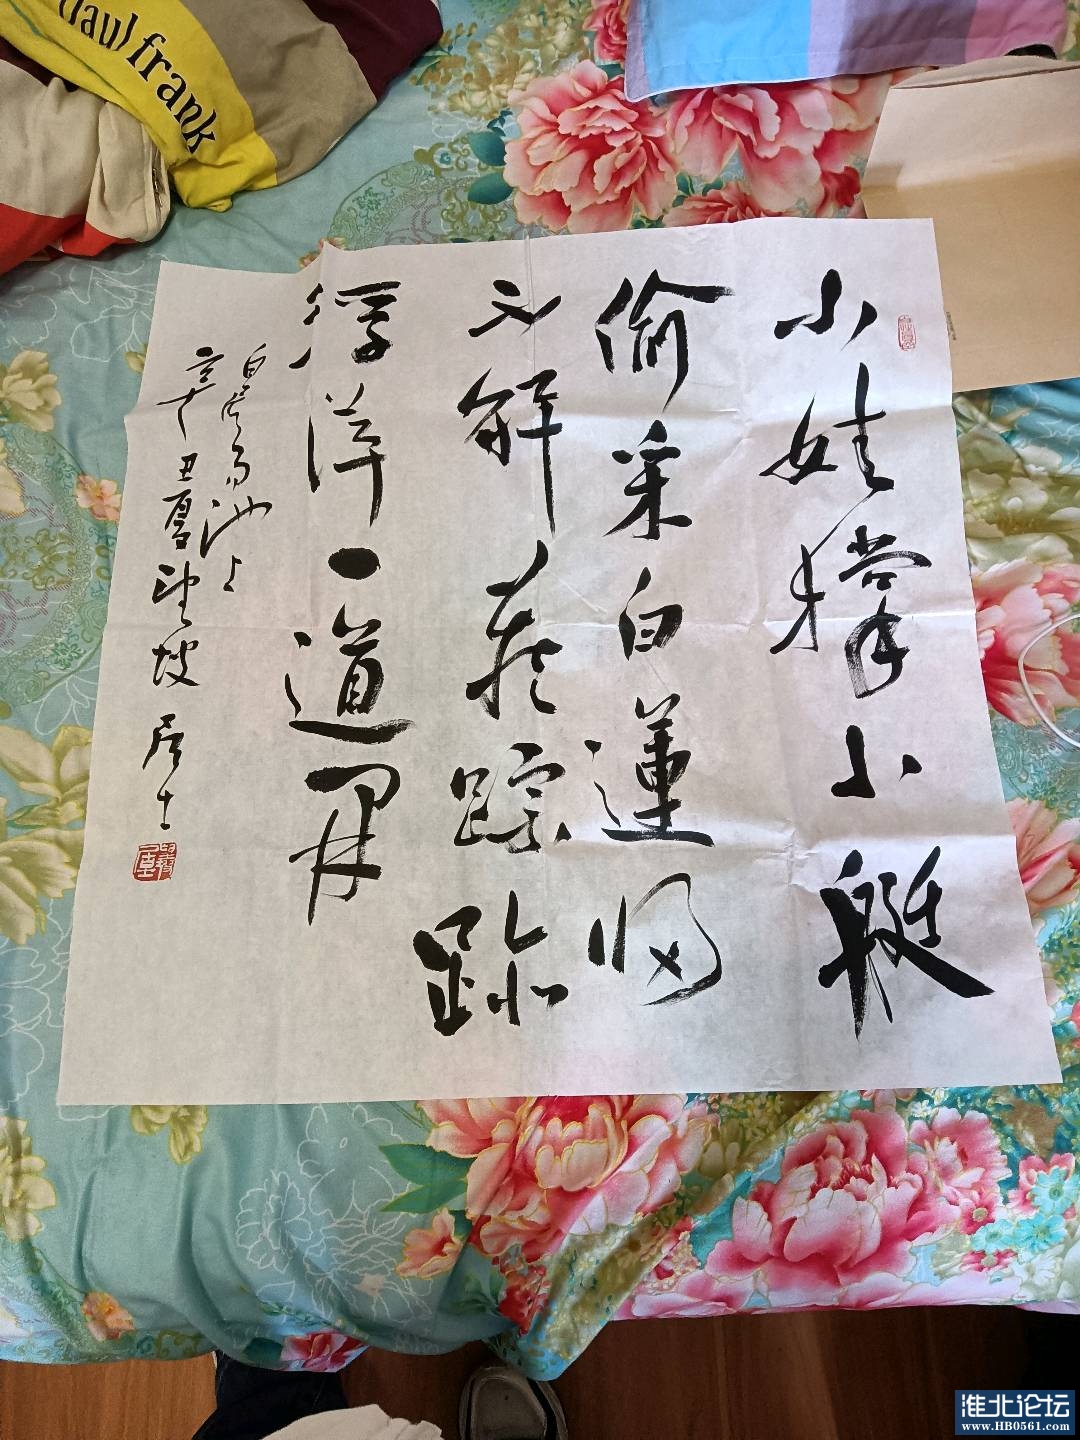 paul frank
小娃撑小艇
偷采白蓮归
不解藏踪跡
浮萍一道開
白居易池上
辛丑夏望坡居士
淮北论坛
www.HB0561.com